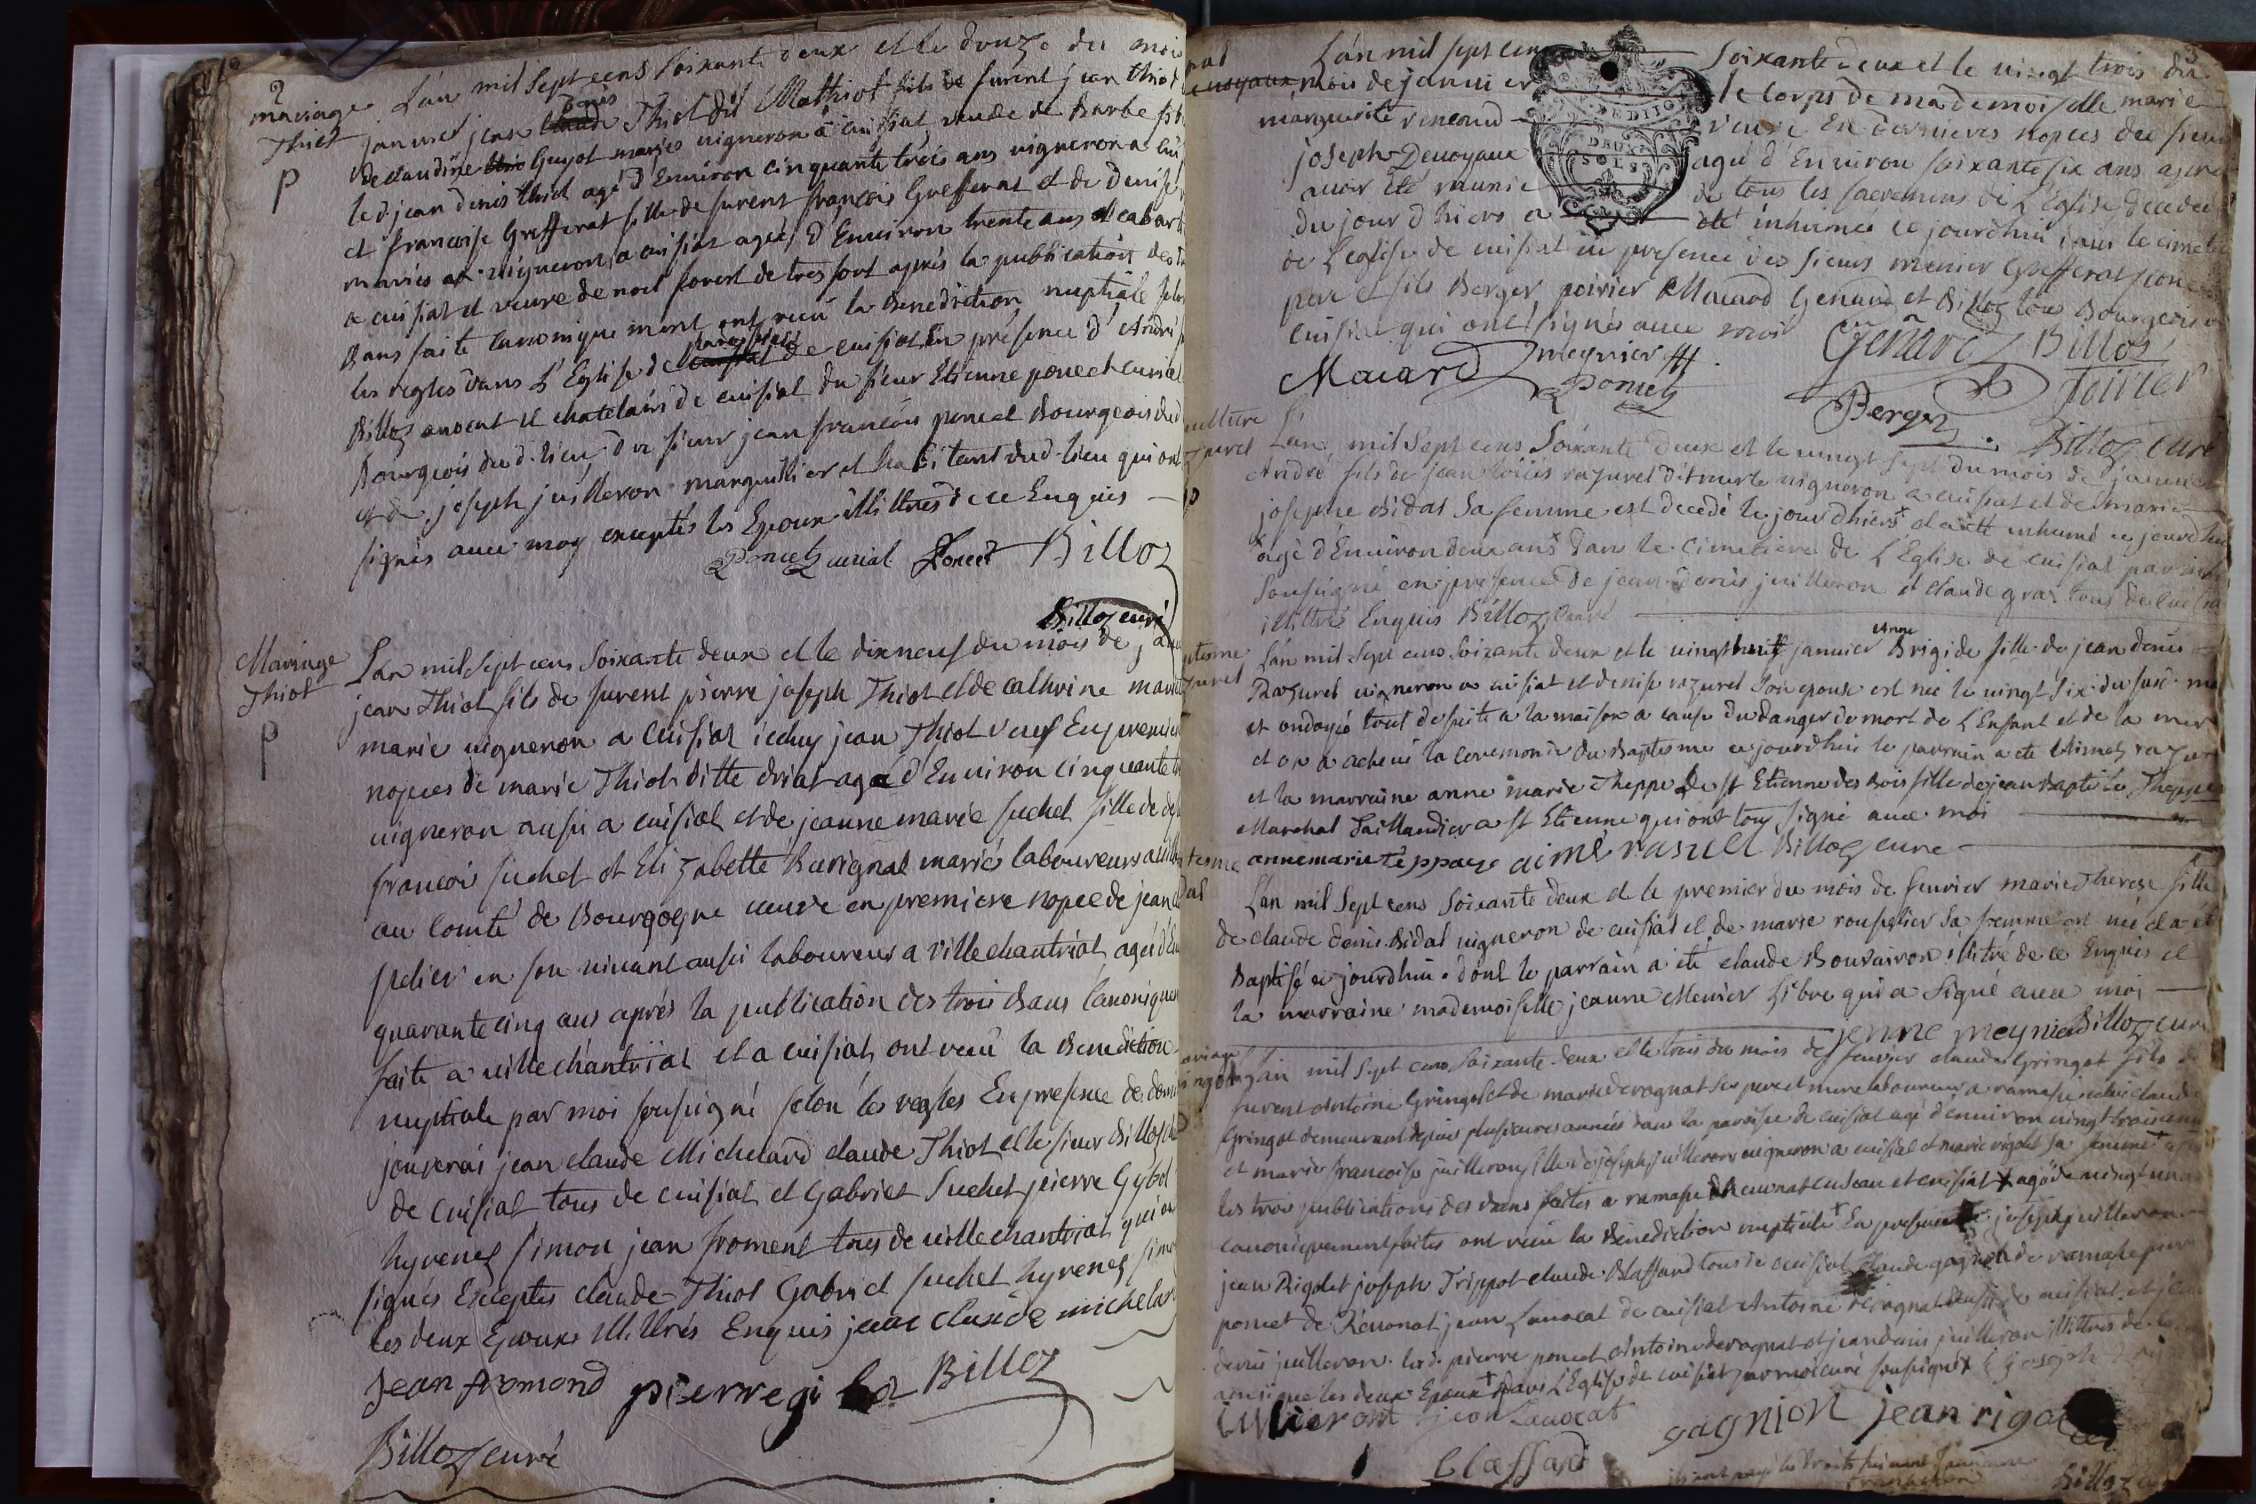 2
mariage L'an mil sept cens soixante deux et le douze du moi
Thiot janvier jean denis Thiot dit Mathiot fils de furent jean thiot
p de claudine Guyot mariés vigneron a cuisiat, veufe de Barbe
le d. jean denis thiot agé d'Environ cinquante trois ans vigneron a cui
et francoise Grefferat fille de furent francois Grefferat et de denise
mariés vigneron a cuisiat agée d'Environ trente ans et cabar
a cuisiat et veuve de noel foret de tresfort aprés la publication des
Bans faite canoniquement ont recu la Benediction nuptiale selon
les regles dans L'Eglise paroissiale de cuisiat En présence d'André
Billoz avocat et chatelain de cuisiat du sieur Etienne poncet curial
Bourgeois du d. lieu du sieur jean francois poncet Bourgeois dud
et de joseph juilleron marguillier et habitant dud. lieu qui ont
signés avec moy exceptés les Epoux illittrés de ce Enquis
Poncet curial Poncet Billoz
Billoz curé
Mariage L'an mil sept cens soixante deux et le dixneuf du mois de janv
Thiot jean Thiot fils de furent pierre joseph Thiot et de cathrine
p marie vigneron a Cuisiat icelluy jean Thiot veuf En premier
nopces de marie Thiot ditte driat agé d'Environ cinquante
vigneron aussi a cuisiat et de jeanne marie suchet fille de
francois suchet et Elizabette Barignat mariés laboureurs a ville
au Comté de Bourgogne veuve en premiere nopce de jean
pelier en son vivant aussi laboureur a villechantriat agée d'En
quarante cinq ans aprés la publication des trois Bans Canonique
faite a villechantriat et a cuisiat, ont recu la Benediction
nuptiale par moi soussigné selon les regles En presence de denis
jouverai jean claude Michelard claude Thiot et le sieur Billoz
de Cuisiat tous de cuisiat et Gabriel Suchet pierre Gybot
hyrenes simon jean froment tous de villechantriat qui on
signés Exceptés claude Thiot Gabriel suchet hyrenes simo
les deux Epoux illittrés Enquis jean claude michelar
jean fromond pierre gi bot Billoz
Billoz curé
L'an mil sept cen soixante deux et le vingt trois du
mois de janvier le corps de mademoiselle marie
marguerite veuve En dernieres nopces du sieur
joseph Devoyaux agée d'Environ soixante six ans apre
avoir été munie de tous les sacremens de L'Eglise decedée
du jour d'hiers a été inhumée ce jourdhui dans le cimetie
de L'Eglise de cuisiat en presence des sieurs menier Grefferat poncet
pere et fils Berger poirier Macard Genard et Billoz tous Bourgeois
cuisiat qui ont signés avec moi
Macard meynier Poncet Genard Billoz
Berger Poirier
Billoz curé
L'an mil sept cens soixante deux et le vingt sept du mois de janvier
André fils de jean louis razurel dit murte vigneron a cuisiat et de marie
josephe Bidat sa femme est decedé le jour d'hiers et a été inhumé ce jourdhui
agé d'Environ deux ans dans le cimetiere de L'Eglise de cuisiat par moi
soussigné en presence de jean denis juilleron et claude gra tous de cuisia
illittrés Enquis Billoz curé
L'an mil sept cens soixante deux et le vingt huit janvier Anne Brigide fille de jean denis
Razurel vigneron a cuisiat et denise razurel son epouse est née le vingt six du susd. mo
et ondoyée tout de suite a la maison a cause du danger de mort de L'Enfant et de la mer
et on a achevé la ceremonie du Baptesme ce jourdhui le parrain a été Aimé razur
et la marraine anne marie Theppe de st Etienne des Bois fille de jean Baptiste Theppe
Marchal Taillandier a st Etienne qui ont tous signé avec moi
annemarie téppaz aimé rasuel Billoz curé
L'an mil sept cens soixante deux et le premier du mois de fevrier marie Therese fille
de claude denis Bidat vigneron de cuisiat et de marie roupelier sa femme est née et a été
Baptisé ce jourdhui dont le parrain a été claude Bouvairon illitré de ce Enquis et
la marraine mademoiselle jeanne Menier libre qui a signé avec moi
jenne meynie Billoz cur
L'an mil sept cens soixante deux et le trois du mois de fevrier claude Gringot fils de
furent Antoine Gringot et de marie deragnat ses pere et mere laboureur a ramasse icelui claude
Gringot demeurant depuis plusieurs années dans la paroisse de cuisiat agé d'environ vingt trois ans
et marie francoise juilleron fille de joseph juilleron vigneron a cuisiat et marie rigolet sa femme
les trois publications des bans faites a ramasse et cuisiat agée de vingt un a
canoniquement faites ont recu la Benediction nuptiale En presence de joseph juilleron
jean Rigolet joseph Trippot claude Blassard tous de cuisiat claude gagnon de ramasse pierre
poncet de Revonat jean Lavocat de cuisiat Antoine deragnat de cuisiat et jean
denis juilleron. led. pierre poncet antoine deragnat et jean denis juilleron illittrés
ainsi que les deux Epoux dans L'Eglise de cuisiat par moi curé soussigné
jean Lavocat gagnion jean rigo
blassard
Billoz